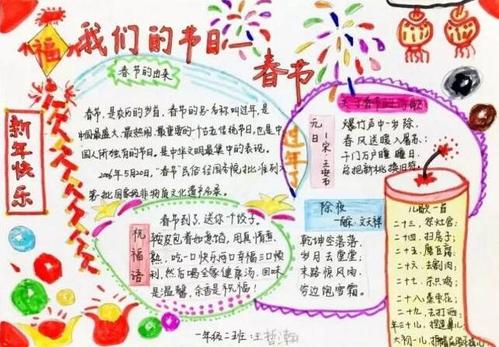 福
我们的节日—
春节
新年快乐
春节的由来
春节，是农历的岁首，春节的另一名称叫过年，是
中国最盛大、最热闹、最重要的一个古老传统节日，也是中
国人所独有的节日，是中华文明最集中的表现。
2006年5月20日，"春节"民俗经国务院批准列
第一批国家级非物质文化遗产名录。
过年
元日
—宋·王安石
爆竹声中一岁除，
春风送暖入屠苏。
千门万户曈曈日，
总把新桃换旧符。
祝福语
春节到了，送你个饺子，
用真情煮
吃一口快乐两口幸福三口顺
利，然后喝全家健康汤，回味
是温馨，余香是祝福！
除夜
文天祥
乾坤空落落，
岁月去堂堂；
末路惊风雨，
穷边饱雪霜。
儿歌一首
二十三，祭灶官；
二十四，扫房子；
二十五，磨豆腐；
二十六，去割肉；
二十七，杀只鸡；
二十八，蒸枣花；
二十九，去打酒；
年三十儿，捏造鼻儿
大初一儿，
一年级二班：王哲瀚